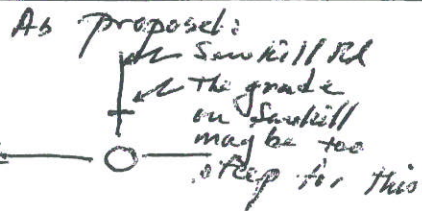 As proposed:
Sawkill Rd
The grade
on Sawkill
may be too
steep for this